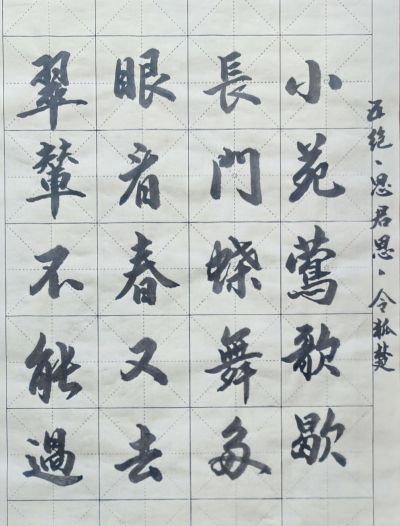 五绝、思君恩、令狐楚
小苑鶯歌歇
長門蝶舞多
眼看春又去
翠輦不能過